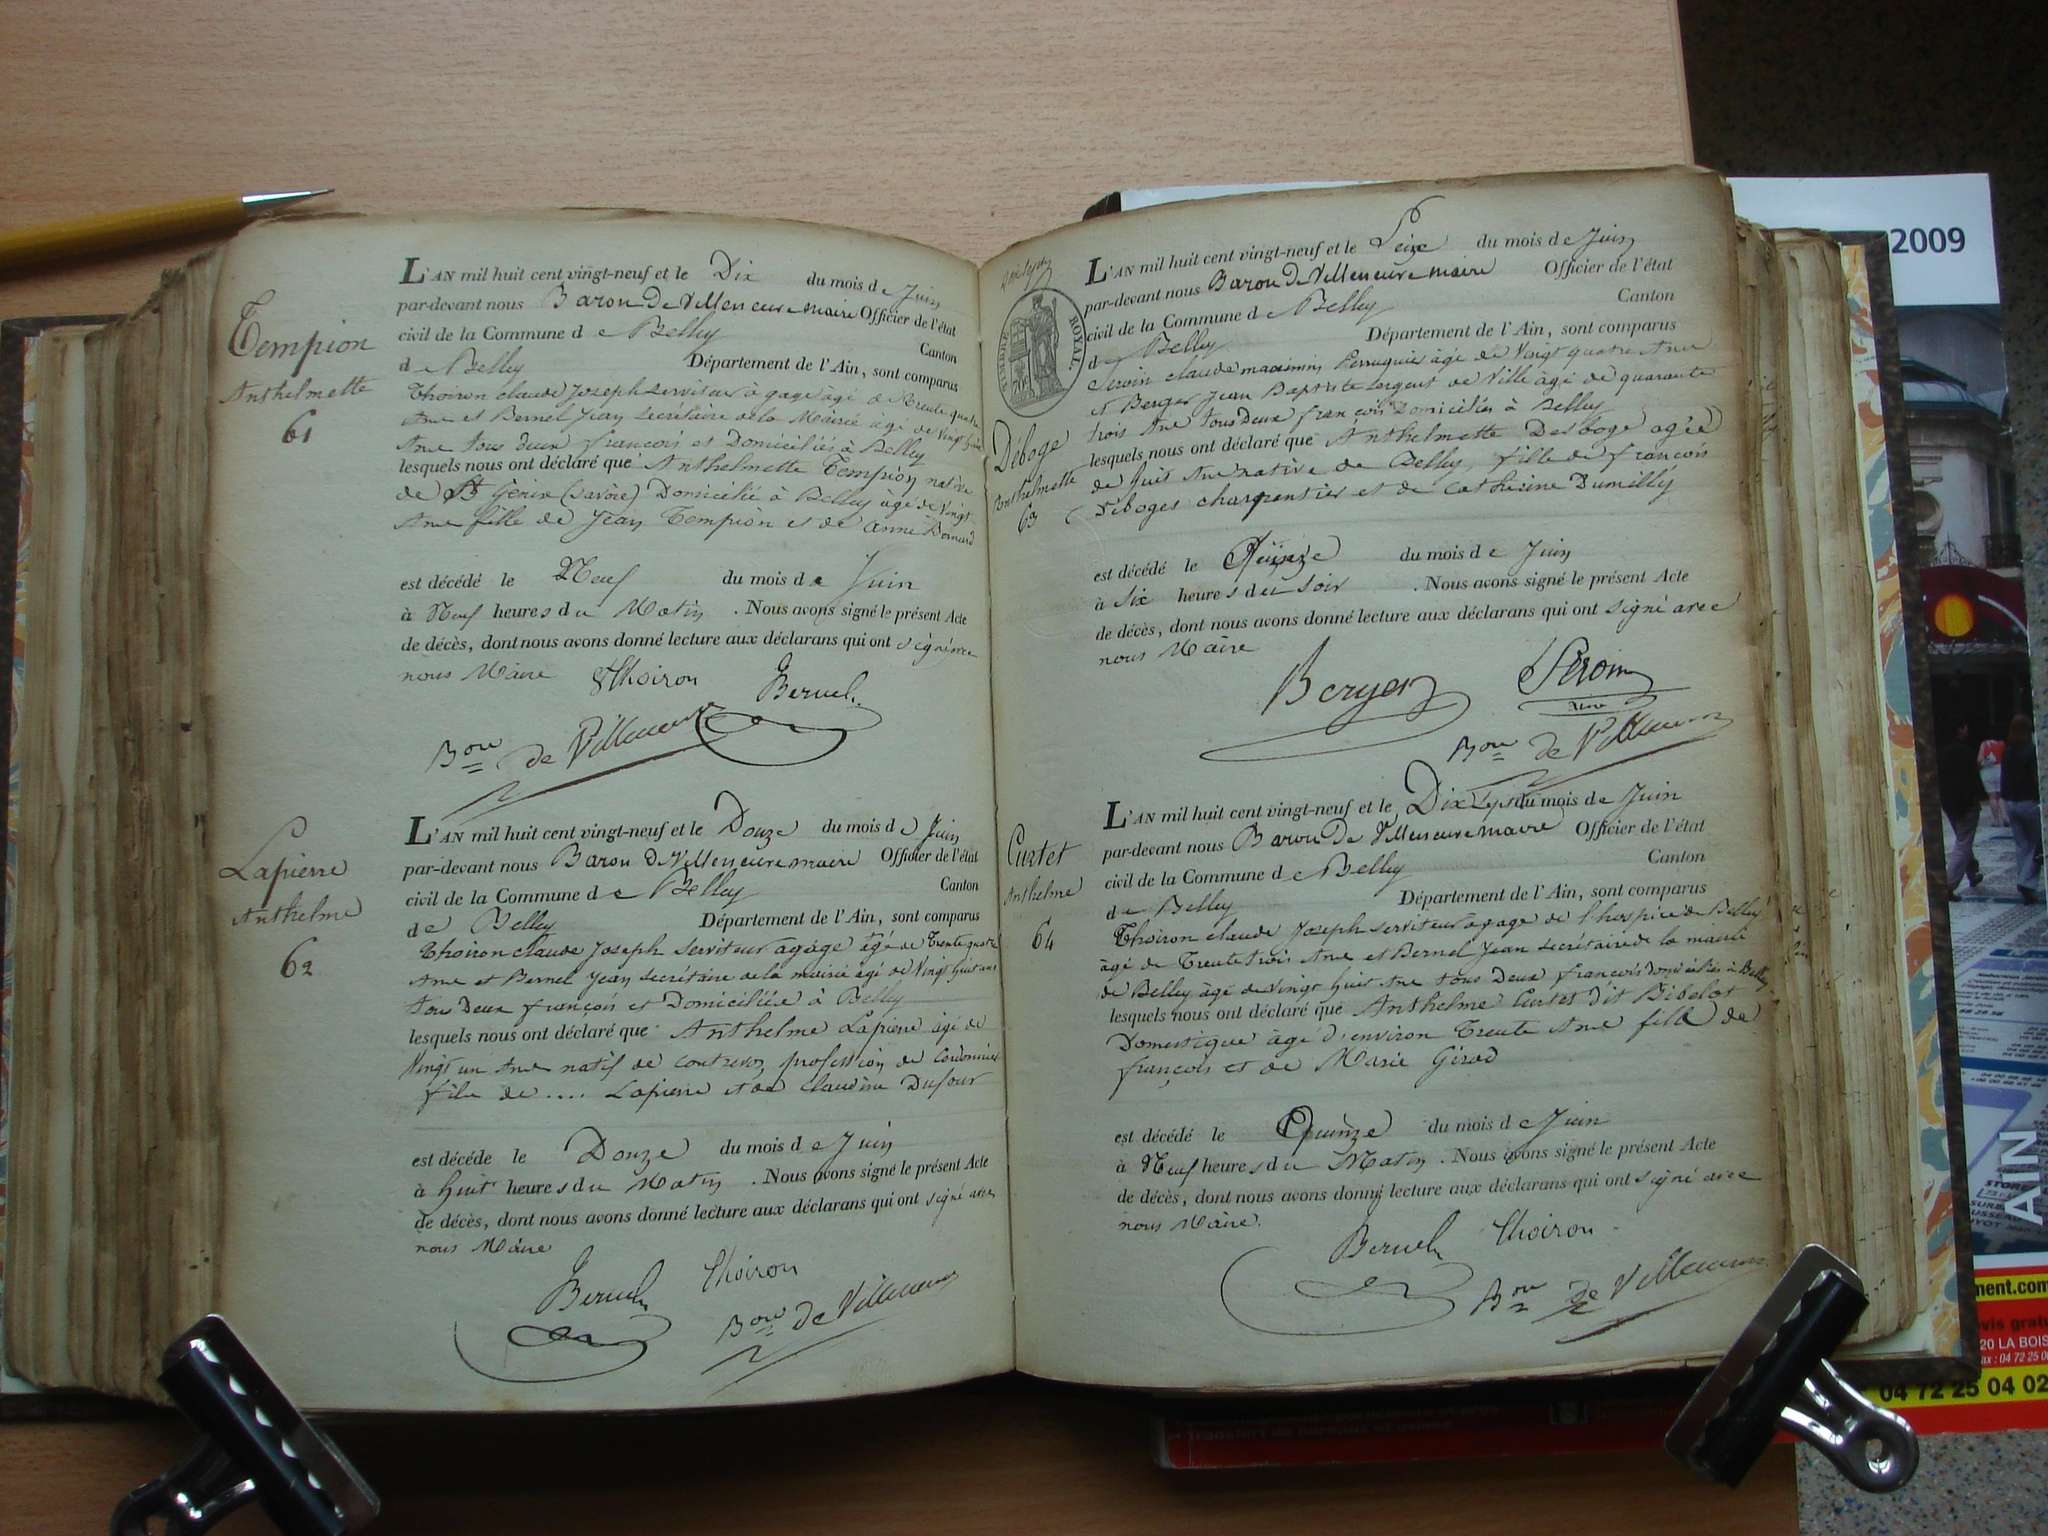 Tempion
Anthelmette
61
L'AN mil huit cent vingt-neuf et le Dix du mois de Juin
par-devant nous Baron De Villeneuve maire Officier de l'état
civil de la Commune de Belley Canton
de Belley Département de l'Ain, sont comparus
Thoiron claude Joseph Serviteur à gage âgé de Trente quatre
Ans et Bernel Jean Secrétaire de la Mairie âgé de Vingt huit
Ans tous deux françois et Domiciliés à Belley
lesquels nous ont déclaré que Anthelmette Tempion native
de St Genix (Savoie) Domicilié à Belley âgé de Vingt
Ans fille de Jean Tempion et de Anne Bernard
est décédé le Neuf du mois de Juin
à Neuf heures du Matin. Nous avons signé le présent Acte
de décès, dont nous avons donné lecture aux déclarans qui ont signé avec
nous Maire Thoiron Bernel
Bon de Villeneuve
Lapierre
Anthelme
62
L'AN mil huit cent vingt-neuf et le Douze du mois de Juin
par-devant nous Baron D Villeneuve maire Officier de l'état
civil de la Commune de Belley Canton
de Belley Département de l'Ain, sont comparus
Thoiron claude Joseph Serviteur à gage âgé de Trente quatre
Ans et Bernel Jean Secrétaire de la mairie âgé de Vingt huit ans
tous Deux françois et Domiciliés à Belley
lesquels nous ont déclaré que Anthelme Lapierre âgé de
Vingt un Ans natif de Contrevoz profession de Cordonnier
fils de .... Lapierre et de Claudine Dufour
est décédé le Douze du mois de Juin
à huit heures du Matin. Nous avons signé le présent Acte
de décès, dont nous avons donné lecture aux déclarans qui ont signé avec
nous Maire
Bernel Thoiron
Bon de Villeneuve
TIMBRE ROYAL
70c
Déboge
Anthelmette
63
L'AN mil huit cent vingt-neuf et le Seize du mois de Juin
par-devant nous Baron De Villeneuve maire Officier de l'état
civil de la Commune de Belley Canton
de Belley Département de l'Ain, sont comparus
Seroin claude maximin Perruquier âgé de Vingt quatre Ans
et Berger Jean Baptiste Sergent de Ville âgé de quarante
trois Ans tous Deux françois Domiciliés à Belley
lesquels nous ont déclaré que Anthelmette Desboge agée
de huit Ans native de Belley, fille de françois
Deboges charpentier et de Catherine Dumilly
est décédé le Quinze du mois de Juin
à Six heures du Soir. Nous avons signé le présent Acte
de décès, dont nous avons donné lecture aux déclarans qui ont signé avec
nous Maire
Berger Seroin
Bon de Villeneuve
Curtet
Anthelme
64
L'AN mil huit cent vingt-neuf et le Dix Sept du mois de Juin
par-devant nous Baron De Villeneuve maire Officier de l'état
civil de la Commune de Belley Canton
de Belley Département de l'Ain, sont comparus
Thoiron claude Joseph serviteur a gage de l'hospice de Belley
âgé de Trente trois Ans et Bernel Jean secrétaire de la mairie
de Belley âgé de Vingt huit Ans tous Deux françois Domiciliés à Belley
lesquels nous ont déclaré que Anthelme Curtet dit Bibelot
Domestique âgé d'environ Trente Ans fils de
françois et de Marie Girod
est décédé le Quinze du mois de Juin
à Neuf heures du Matin. Nous avons signé le présent Acte
de décès, dont nous avons donné lecture aux déclarans qui ont signé avec
nous Maire.
Bernel Thoiron
Bon de Villeneuve
2009
AIN
20 LA BOIS
04 72 25 04 02